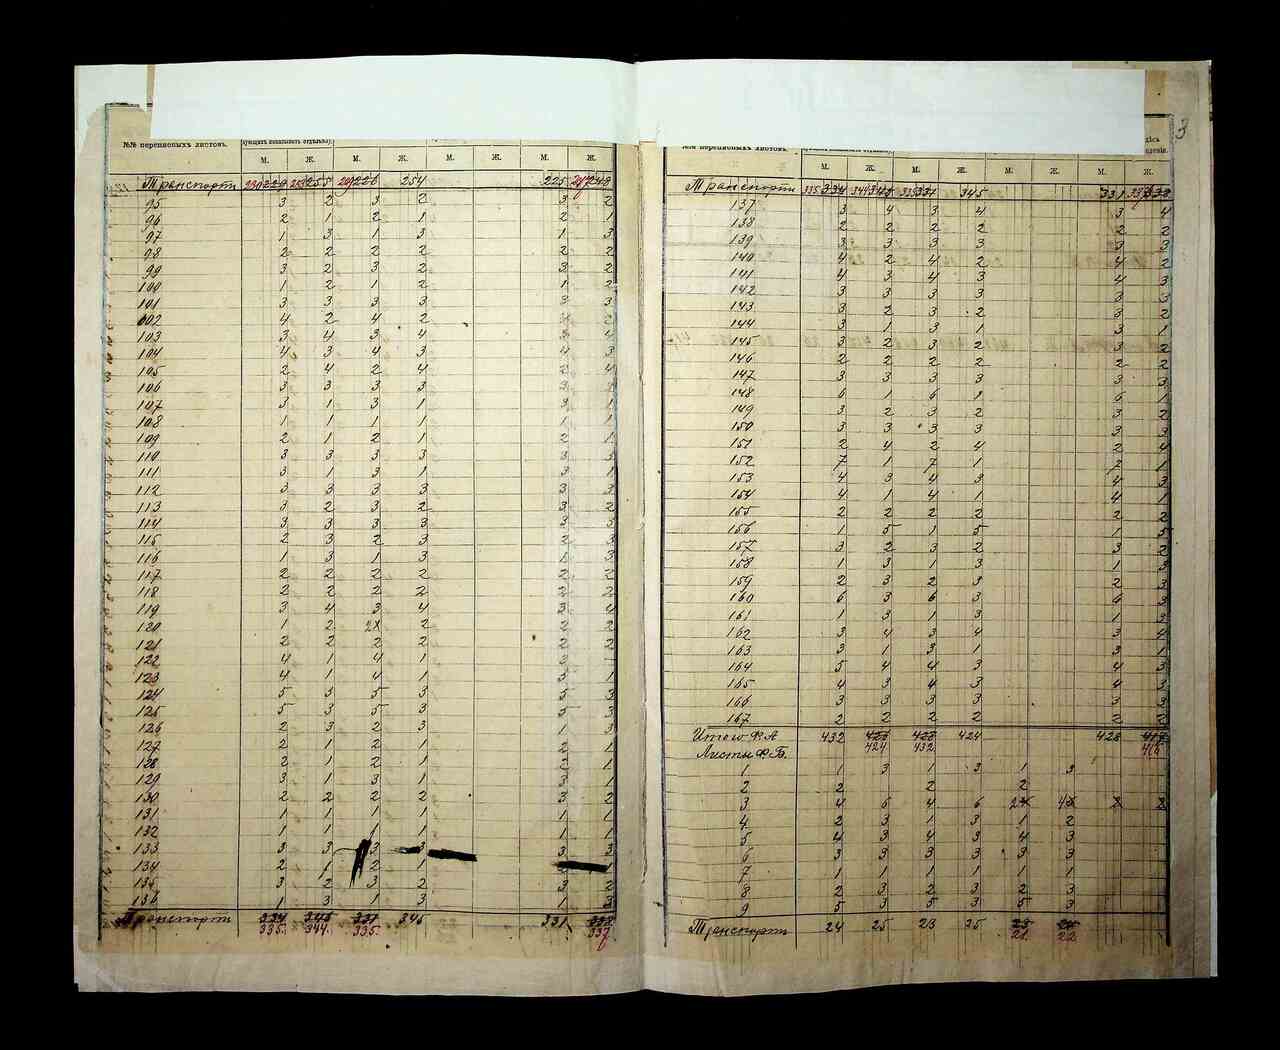 №№ переписныхъ листовъ.
М. Ж. М. Ж. М. Ж. М. Ж.
Транспортъ 254 225
95 3 2 3 2 3 2
96 2 1 2 1 2 1
97 1 3 1 3 1 3
98 2 2 2 2 2 2
99 3 2 3 2 3 2
100 1 2 1 2 1 2
101 3 3 3 3 3 3
102 4 2 4 2
103 3 4 3 4 3 4
104 4 3 4 3 4 3
105 2 4 2 4 2 4
106 3 3 3 3 3 3
107 3 1 3 1 3 1
108 1 1 1 1 1 1
109 2 1 2 1 2 1
110 3 3 3 3 3 3
111 3 1 3 1 3 1
112 3 3 3 3 3 3
113 3 2 3 2 3 2
114 3 3 3 3 3 3
115 2 3 2 3 2 3
116 1 3 1 3 1 3
117 2 2 2 2 2 2
118 2 2 2 2 2 2
119 3 4 3 4 3 4
120 1 2 2 2 2
121 2 2 2 2 2 2
122 4 1 4 1 1
123 4 1 4 1 3 1
124 5 3 5 3 3 3
125 5 3 5 3 3
126 2 3 2 3 1 3
127 2 1 2 1 2 1
128 2 1 2 1 2 1
129 3 1 3 1 3 1
130 2 2 2 2 3 2
131 1 1 1 1 1 1
132 1 1 1 1 1 1
133 3 3 3 3 3 3
134 2 1 2 1
135 3 2 3 2 3 2
136 1 3 1 3 1 3
Транспортъ 334 345 337 345 331 338
335. 344. 335. 337
3
№№ переписныхъ листовъ.
М. Ж. М. Ж. М. Ж. М. Ж.
Транспортъ 335 334 344 345 335 337 345 331 337 338
137 3 4 3 4 3 4
138 2 2 2 2 2 2
139 3 3 3 3 3 3
140 4 2 4 2 4 2
141 4 3 4 3 4 3
142 3 3 3 3 3 3
143 3 2 3 2 3 2
144 3 1 3 1 3 1
145 3 2 3 2 3 2
146 2 2 2 2 2 2
147 3 3 3 3 3 3
148 6 1 6 1 6 1
149 3 2 3 2 3 2
150 3 3 3 3 3 3
151 2 4 2 4 2 4
152 7 1 7 1 7 1
153 4 3 4 3 4 3
154 4 1 4 1 4 1
155 2 2 2 2 2 2
156 1 5 1 5 1 5
157 3 2 3 2 3 2
158 1 3 1 3 1 3
159 2 3 2 3 2 3
160 6 3 6 3 6 3
161 1 3 1 3 1 3
162 3 4 3 4 3 4
163 3 1 3 1 3 1
164 5 4 4 3 4 3
165 4 3 4 3 4 3
166 3 3 3 3 3 3
167 2 2 2 2 2 2
Итого Ф. А 432 423 428 424 428 417
424 432 416
Листы Ф. Б.
1 1 3 1 3 1 3
2 2 2 2
3 4 6 4 6 2 4 2 2
4 2 3 1 3 1 2
5 4 3 4 3 4 3
6 3 3 3 3 3 3
7 1 1 1 1 1 1
8 2 3 2 3 2 3
9 5 3 5 3 5 3
Транспортъ 24 25 23 25 23 24
21. 22.